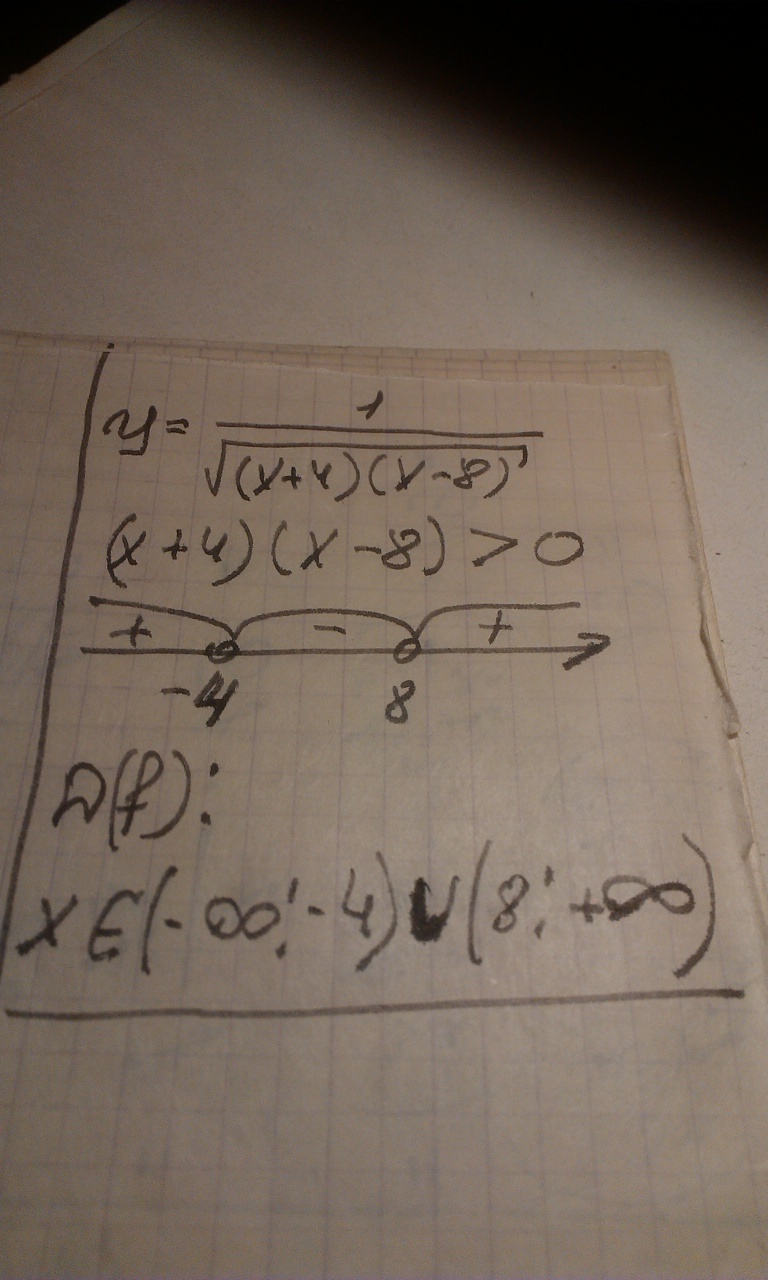 y = 1/√((x+4)(x-8))
(x+4)(x-8) > 0
+ - +
-4 8
D(f):
x ∈ (-∞; -4) ∪ (8; +∞)